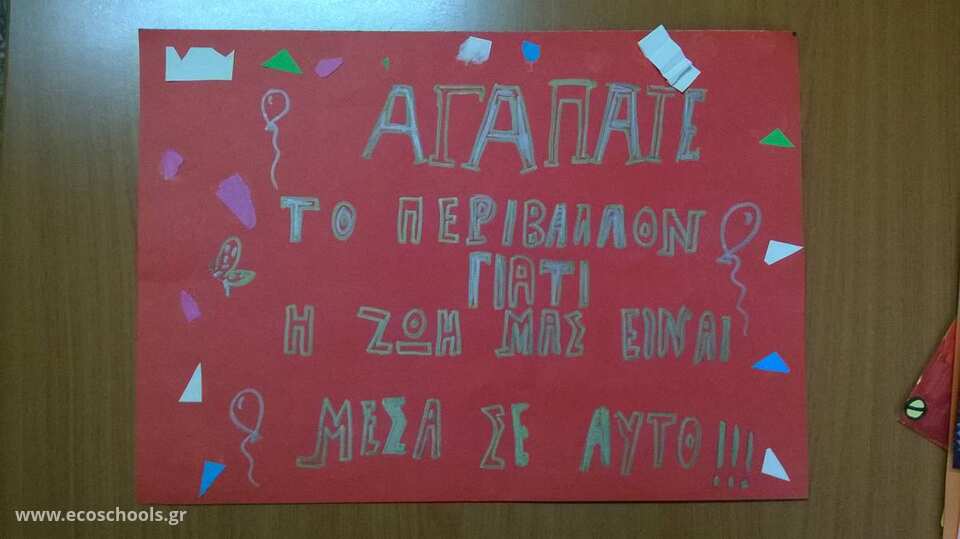 ΑΓΑΠΑΤΕ
ΤΟ ΠΕΡΙΒΑΛΛΟΝ
ΓΙΑΤΙ
Η ΖΩΗ ΜΑΣ ΕΙΝΑΙ
ΜΕΣΑ ΣΕ ΑΥΤΟ!!!
www.ecoschools.gr